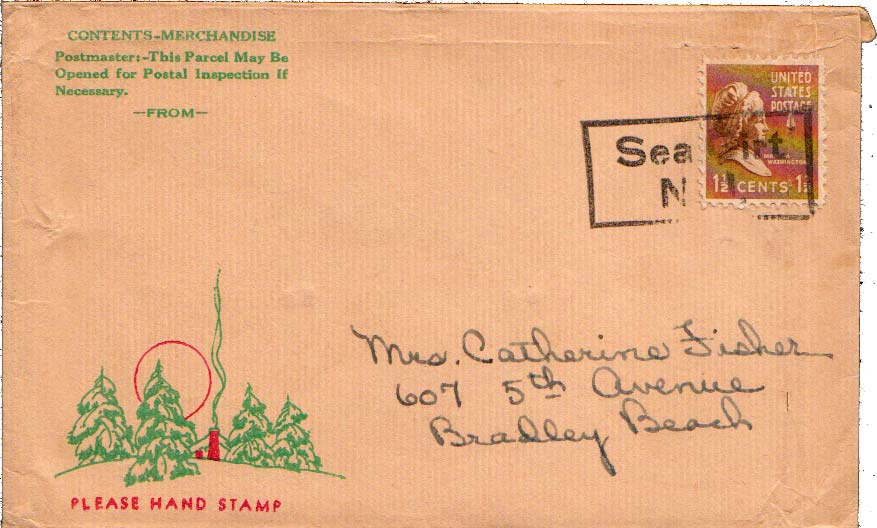 CONTENTS-MERCHANDISE
Postmaster:-This Parcel May Be
Opened for Postal Inspection If
Necessary.
—FROM—
UNITED
STATES
POSTAGE
MARTHA
WASHINGTON
1½ CENTS 1½
Sea Girt
N.J.
Mrs. Catherine Fisher
607 5th Avenue
Bradley Beach
PLEASE HAND STAMP